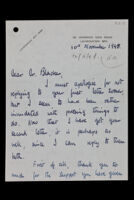 10th November 1958.
Dear Dr. Blacker,
I must apologise for not
replying to your first letter sooner,
but I seem to have been rather
inundated with pressing things to
do. Now we have got your
second letter it is perhaps as
well, since I can reply to them
both.
First of all, thank you so
much for the support you have given